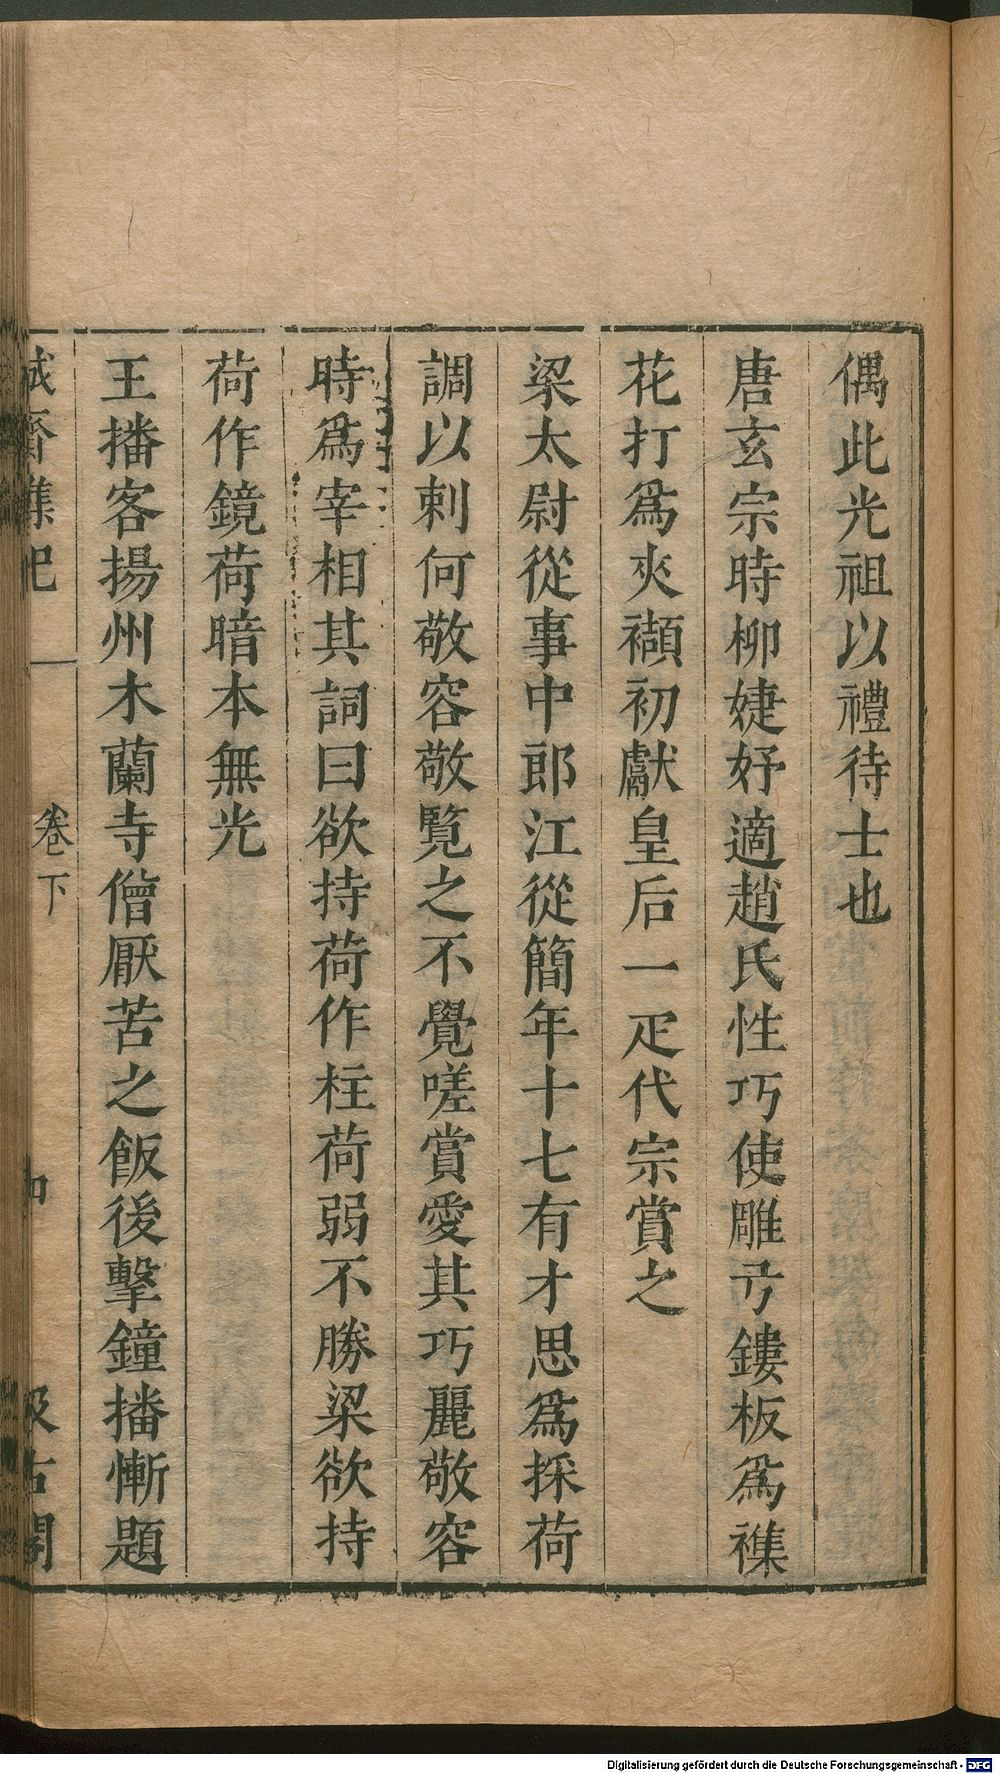 偶此光祖以禮待士也
唐玄宗時柳婕妤適趙氏性巧使雕刓鏤板爲襍
花打爲夾纈初獻皇后一疋代宗賞之
梁太尉從事中郎江從簡年十七有才思爲採荷
調以刺何敬容敬覽之不覺嗟賞愛其巧麗敬容
時爲宰相其詞曰欲持荷作柱荷弱不勝梁欲持
荷作鏡荷暗本無光
王播客揚州木蘭寺僧厭苦之飯後擊鐘播慚題
誠齋襍記
卷下
汲古閣
Digitalisierung gefördert durch die Deutsche Forschungsgemeinschaft - DFG